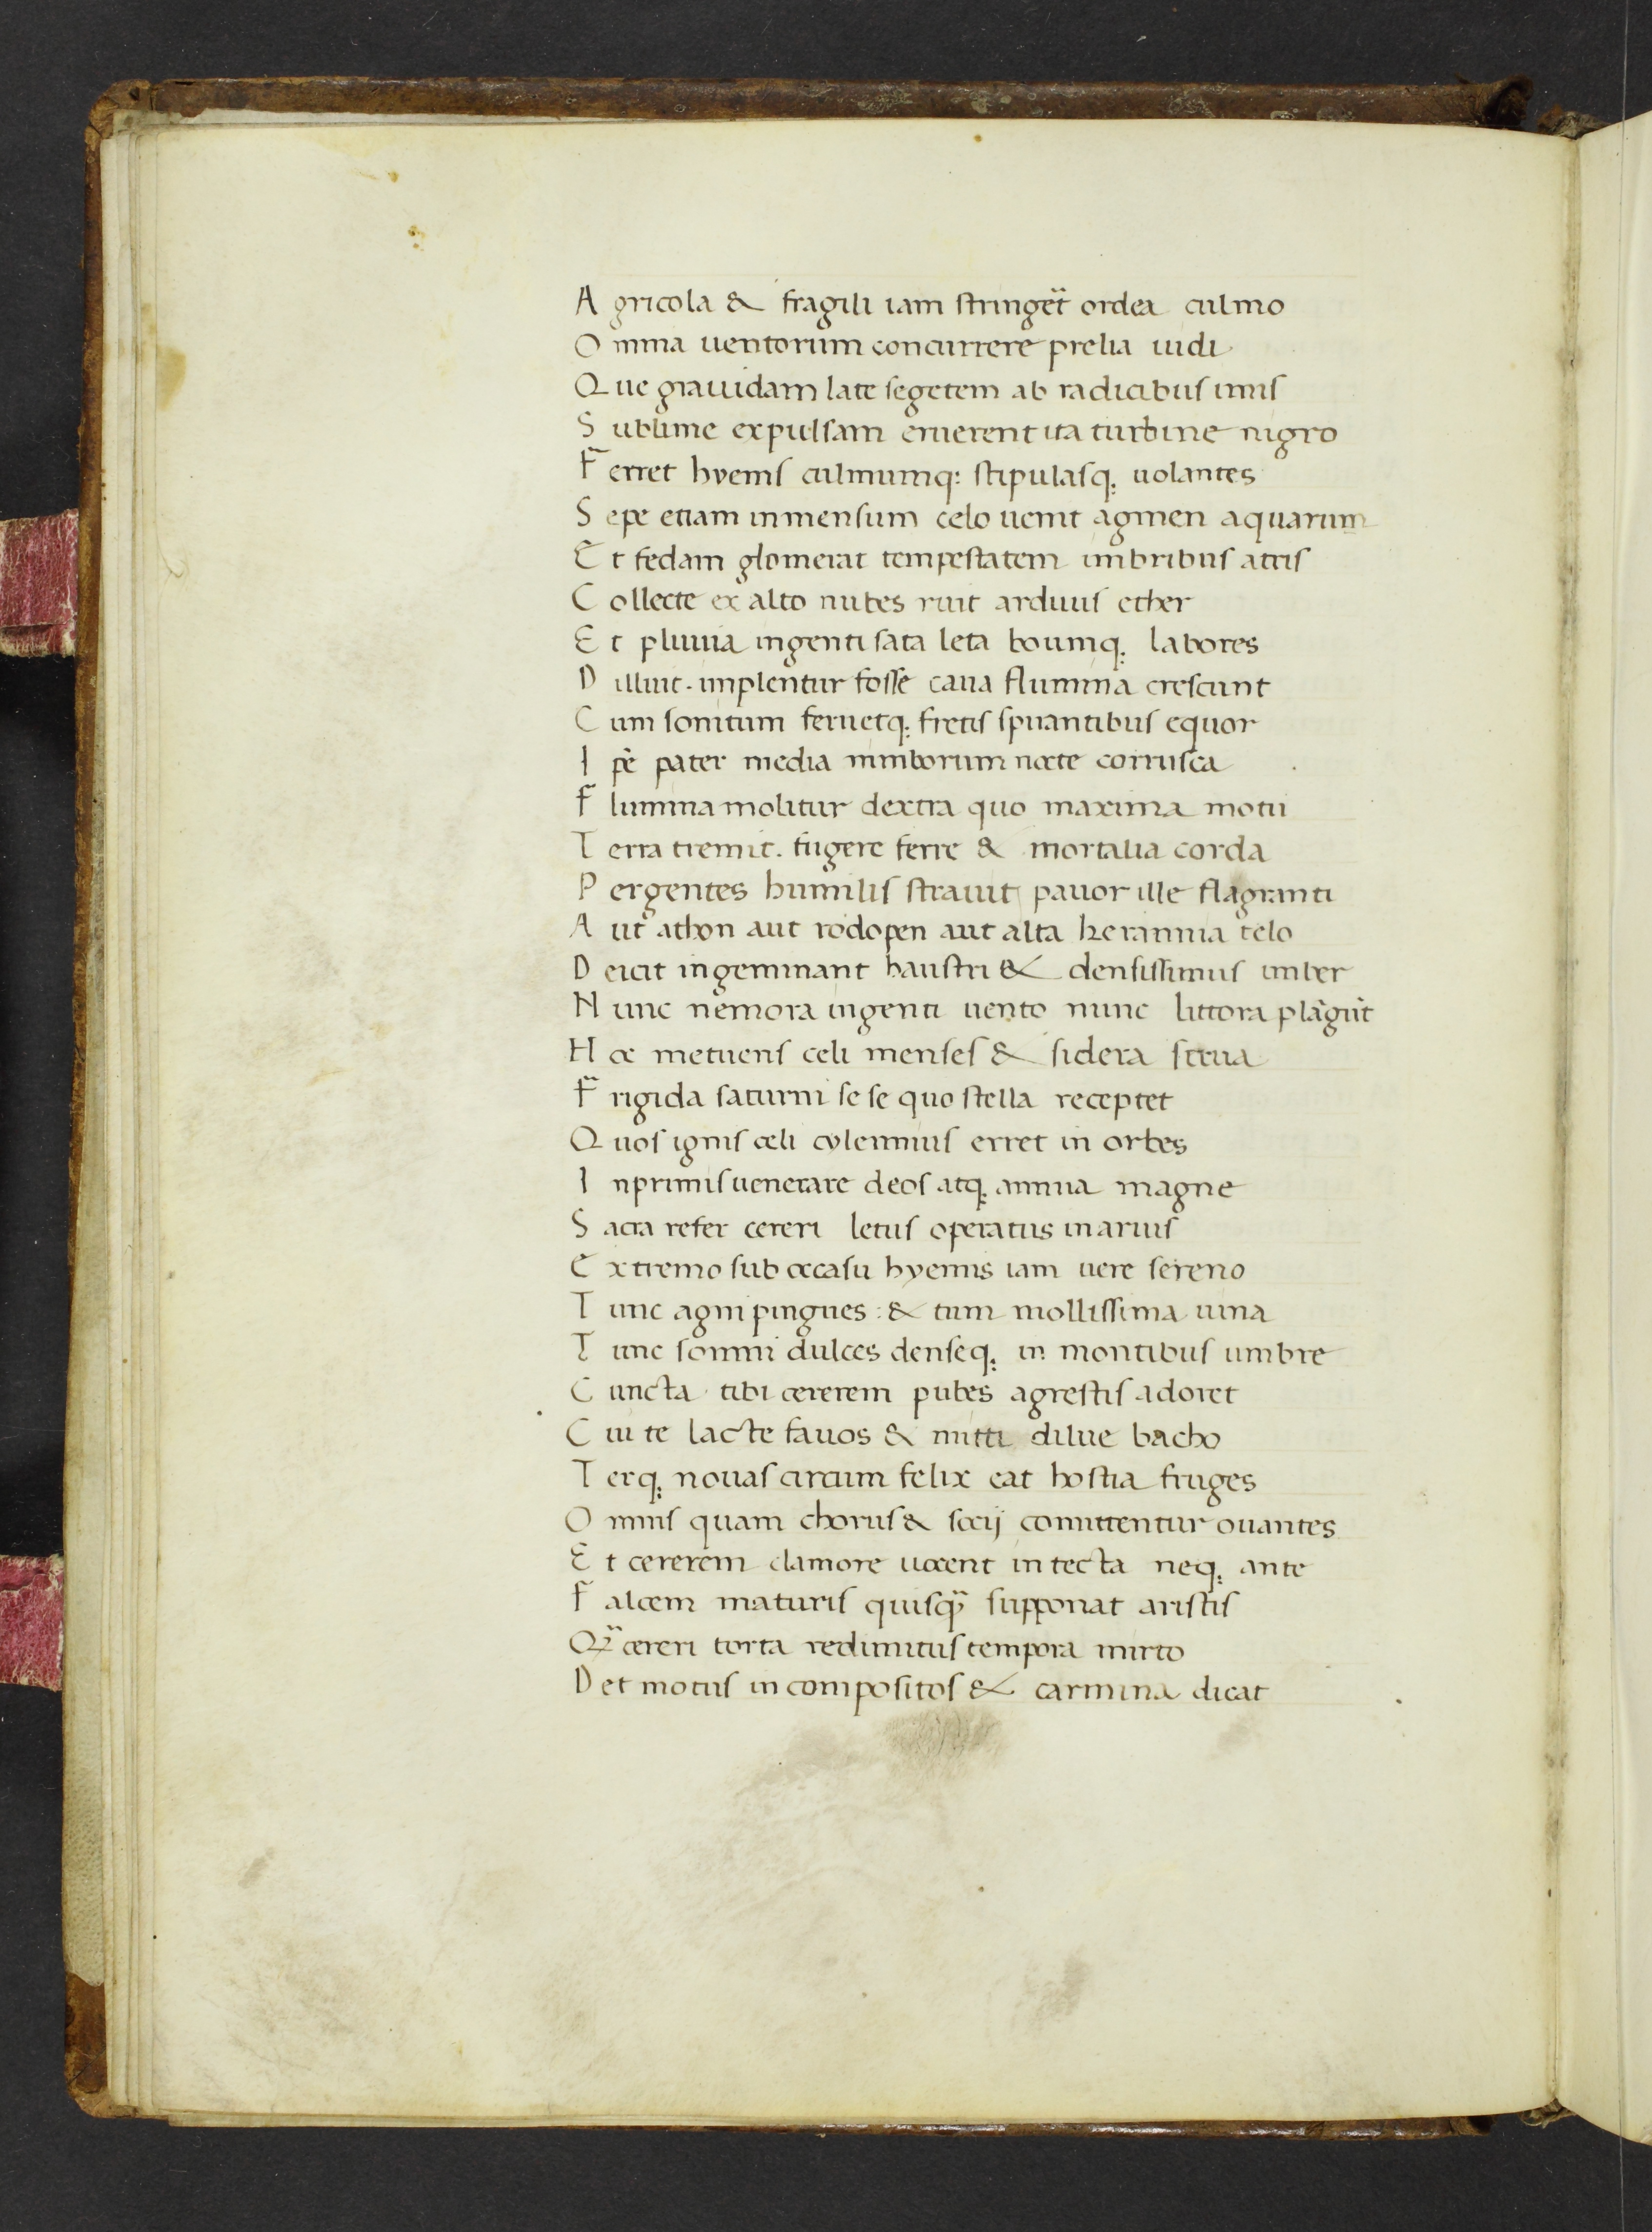 A gricola & fragili iam stringet̄ ordea culmo
O mnia uentorum concurrere prelia uidi
Q ue grauidam late segetem ab radicibus imis
S ublime expulsam eruerent ita turbine nigro
F erret hyems culmumq: stipulasq; uolantes
S epe etiam inmensum celo uenit agmen aquarum
E t fedam glomerat tempestatem imbribus atris
C ollecte ex alto nubes ruit arduus ether
E t pluuia ingenti sata leta boumq; labores
D illuit. implentur fosse caua flumina crescunt
C um sonitum feruetq; fretis spuantibus equor
I pē pater media nimborum nocte corrusca
F lumina molitur dextra quo maxima motu
T erra tremit. fugere ferre & mortalia corda
P ergentes humilis strauit pauor ille flagranti
A ut athon aut rodopen aut alta keraunia telo
D eicit ingeminant haustri & densissimus imber
N unc nemora ingenti uento nunc littora plāgūt
H oc metuens celi menses & sidera serua
F rigida saturni se se quo stella receptet
Q uos ignis celi cylennius erret in orbes
I nprimis uenerare deos atq; annua magne
S acra refer cereri letus operatus in aruis
E xtremo sub occasu hyemis iam uere sereno
T unc agni pingues : & tum mollissima uina
T unc somni dulces denseq; in montibus umbre
C uncta tibi cererem pubes agrestis adoret
C ui te lacte fauos & mitti dilue bacho
T erq; nouas circum felix eat hostia fruges
O mnis quam chorus & socij comittentur ouantes
E t cererem clamore uocent in tecta neq; ante
F alcem maturis quisq̄ supponat aristis
Q̄ cereri torta redimitus tempora mirto
D et motus incompositos & carmina dicat